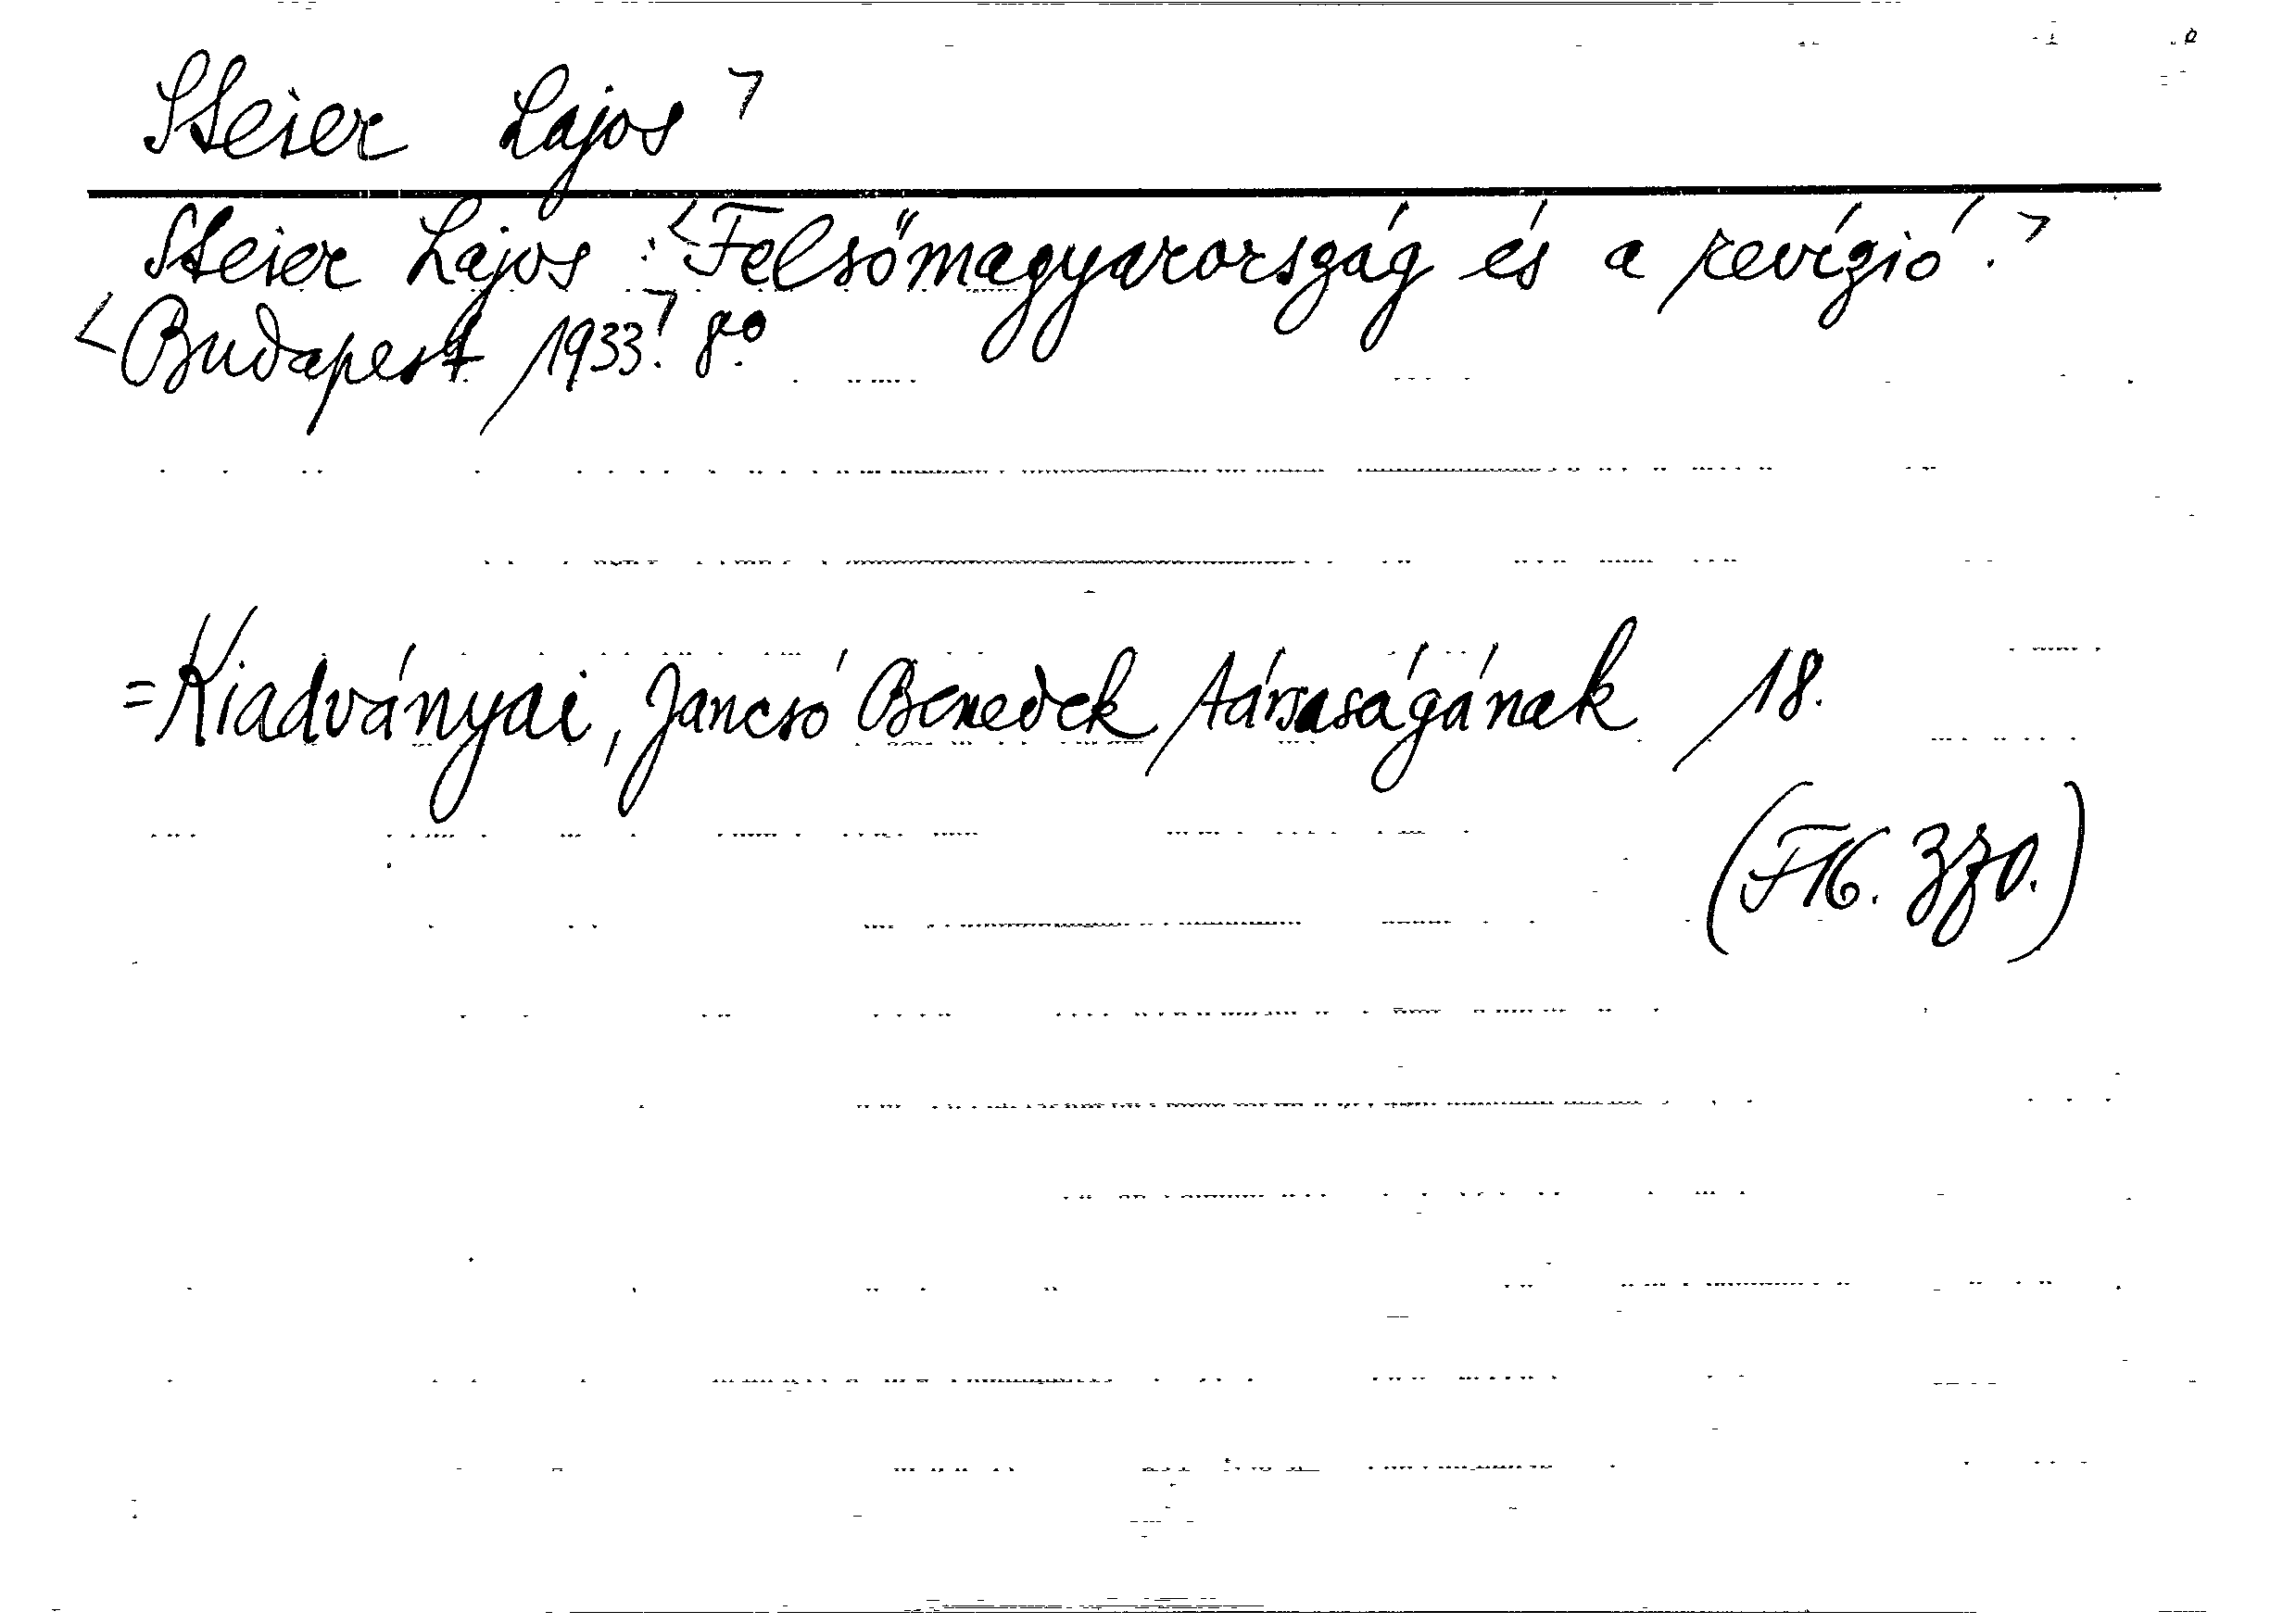 Steier Lajos ⌝
Steier Lajos : <Felsőmagyarország és a revízió. ⌝
<Budapest 1933.⌝ 8°.
=Kiadványai, Jancsó Benedek társaságának 18.
(F16. 370.)